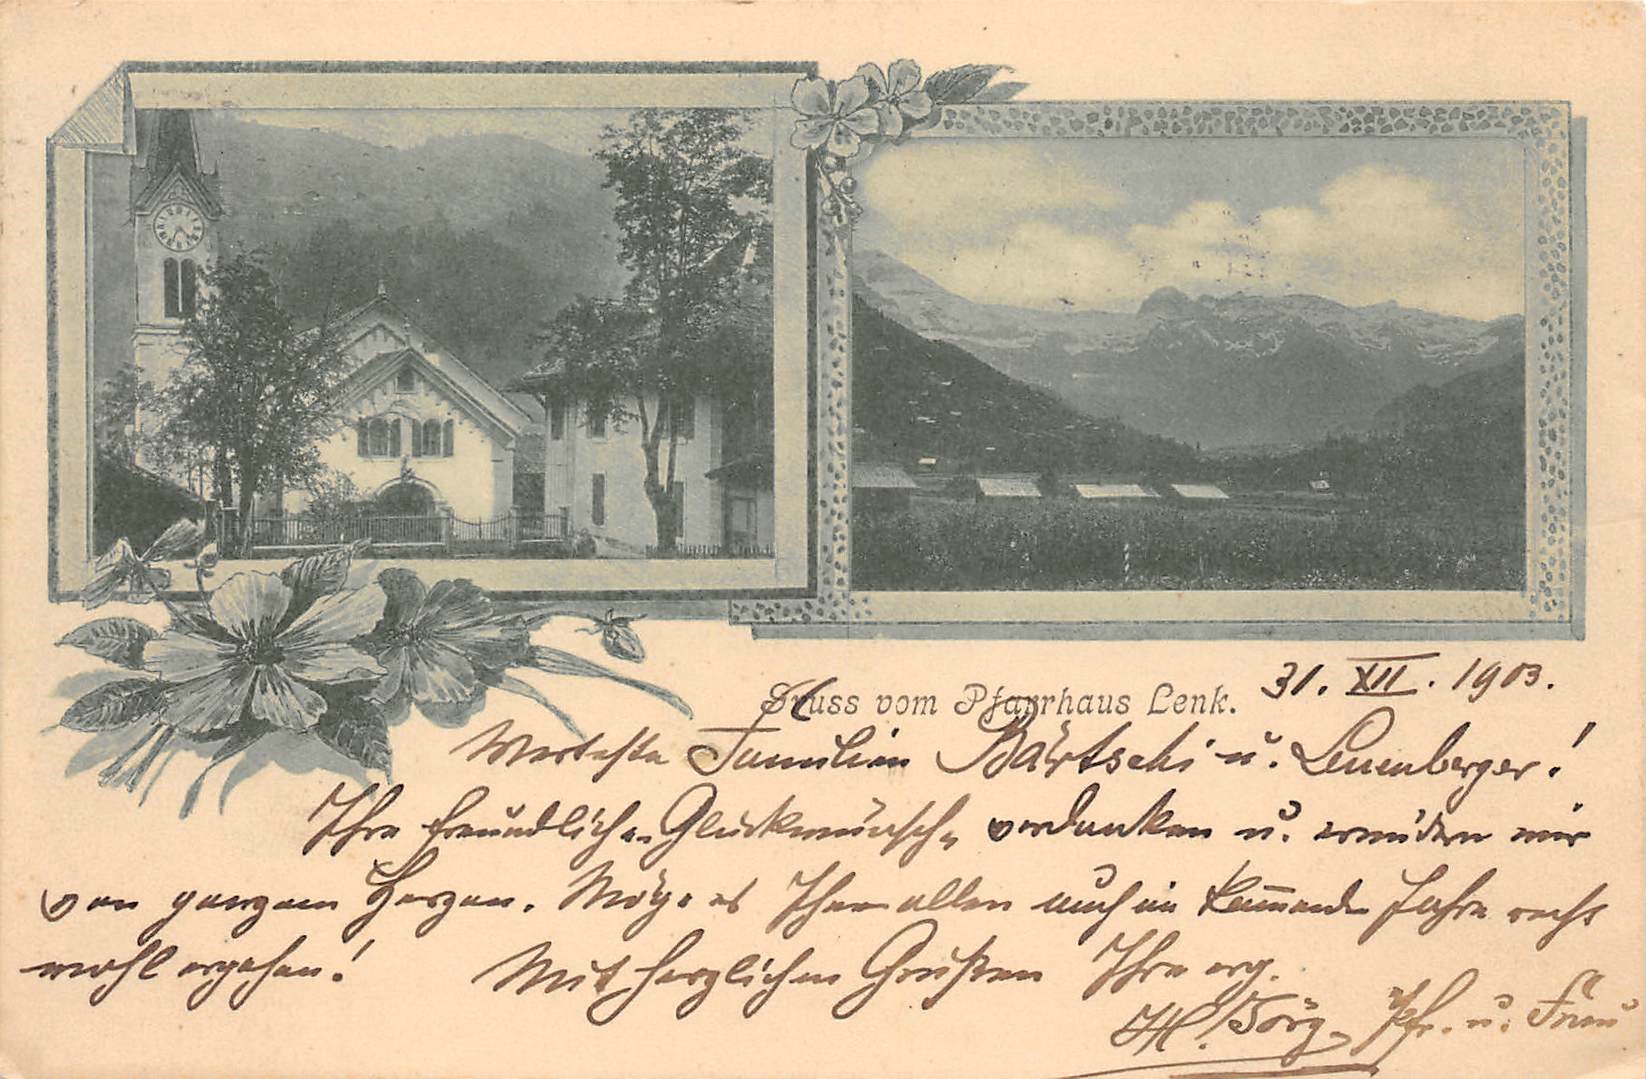 Gruss vom Pfarrhaus Lenk. 31. XII. 1903.
Werteste Familien Bärtschi u. Leuenberger!
Ihre freundlichen Glückwünsche verdanken u. erwidern wir
von ganzem Herzen. Möge es Ihnen allen auch im kommende Jahre recht
wohl ergehen! Mit herzlichen Grüßen Ihre erg.
Pfr. u. Frau